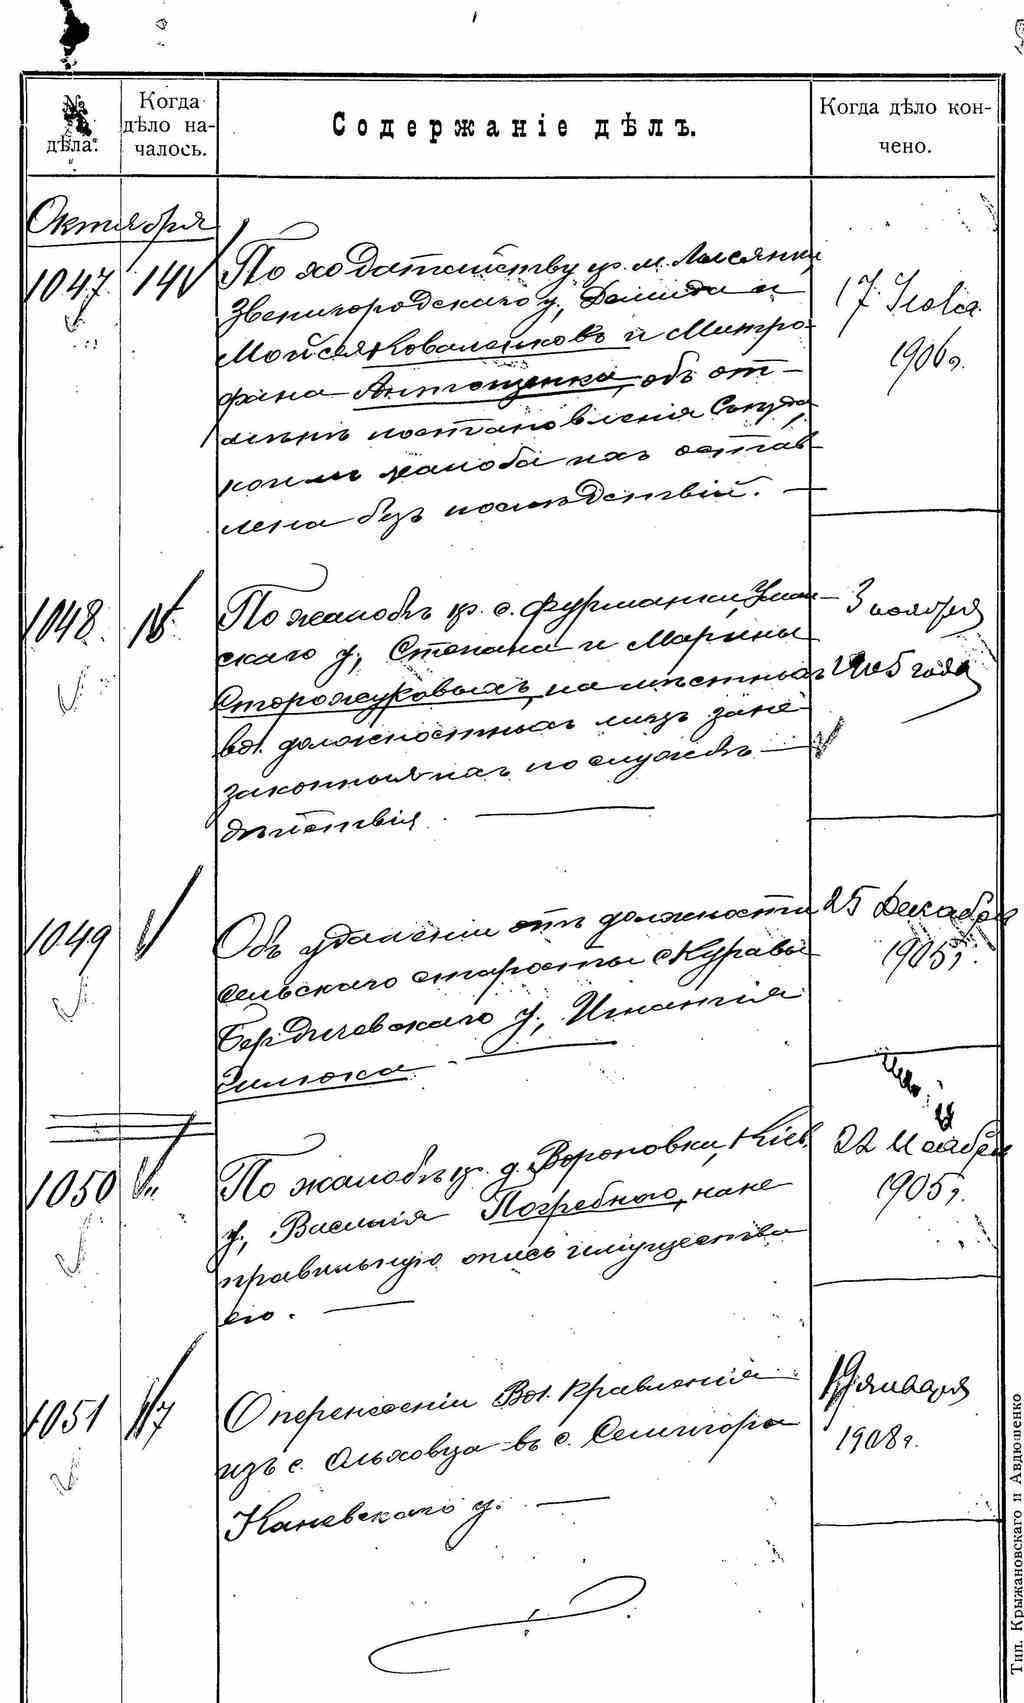 № дѣла.
Когда дѣло на-
чалось.
Содержаніе дѣлъ.
Когда дѣло кон-
чено.
Октября
1047 14
По ходатайству кр. м. Лысянки,
Звенигородскаго у., Демида и
Мойсея Коваленковъ и Митро-
фана Антощенка, объ от-
мѣнѣ постановленія Съѣзда,
коимъ жалоба ихъ остав-
лена безъ послѣдствій. —
17 Іюля
1906 г.
1048 15
По жалобѣ кр. с. Фурманки, Уман-
скаго у., Степана и Марины
Сторожуковыхъ, на мѣстныхъ
вол. должностныхъ лицъ за не-
законныя ихъ по службѣ —
дѣйствія. —
3 ноября
1905 года
1049
Объ удаленіи отъ должности
сельскаго старосты с.
Бердичевскаго у., Игнатія
25 Декабря
1905 г.
1050
По жалобѣ кр. д. Вороновки, Кіев.
у., Василія Погребного, на не-
правильную опись имущества
его. —
22 Ноября
1905 г.
1051 17
О перенесеніи Вол. Правленія
изъ с. Ольховца въ с. Семигоры
Каневскаго у. —
19 января
1908 г.
Тип. Крыжановскаго и Авдюшенко